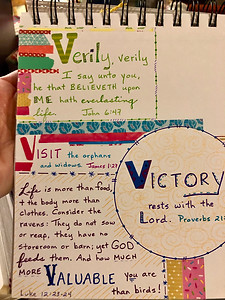 Verily, verily
I say unto you,
he that BELIEVETH upon
ME hath everlasting
life. John 6:47
VISIT the orphans
and widows. James 1:27
Life is more than food,
+ the body more than
clothes. Consider the
ravens: They do not sow
or reap, they have no
storeroom or barn; yet GOD
feeds them. And how MUCH
MORE VALUABLE you are
than birds!
Luke 12:23-24
VICTORY
rests with the
Lord. Proverbs 21: